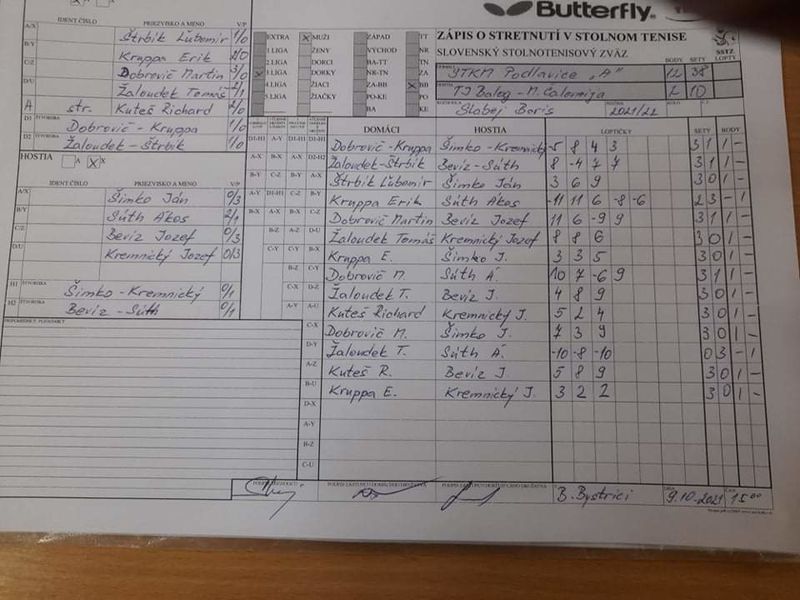 Butterfly
ZÁPIS O STRETNUTÍ V STOLNOM TENISE
SLOVENSKÝ STOLNOTENISOVÝ ZVÄZ
SSTZ
BODY SETY
STKM Podlavice "A" 12 38
TJ Baleg - M. Čalomija 2 10
Slabej Boris 2021/22
EXTRA X MUŽI ZÁPAD TT
1 LIGA ŽENY VÝCHOD NR
2 LIGA DORCI BA-TT TN
3 LIGA DORKY NR-TN ZA
4 LIGA ŽIACI ZA-BB X BB
5 LIGA ŽIAČKY PO-KE PO
BA KE
IDENT ČÍSLO PRIEZVISKO A MENO V/P
A/X Štrbik Ľubomír 1/0
B/Y Kruppa Erik 2/0
C/Z Dobrovič Martin 3/0
D/U Žaloudek Tomáš 2/1
A str. Kuteš Richard 2/0
D1 ŠTVORHRA Dobrovič - Kruppa 1/0
D2 ŠTVORHRA Žaloudek - Štrbik 1/0
HOSTIA A X X
IDENT ČÍSLO PRIEZVISKO A MENO V/P
A/X Šimko Ján 0/3
B/Y Súth Ákos 2/1
C/Z Bevíz Jozef 0/3
D/U Kremnický Jozef 0/3
H1 ŠTVORHRA Šimko - Kremnický 0/1
H2 ŠTVORHRA Bevíz - Súth 0/1
DOMÁCI HOSTIA LOPTIČKY SETY BODY
Dobrovič - Kruppa Šimko - Kremnický -5 8 4 3 3 1 1 -
Žaloudek - Štrbik Bevíz - Súth 8 -4 7 7 3 1 1 -
Štrbik Ľubomír Šimko Ján 3 6 9 3 0 1 -
Kruppa Erik Súth Ákos -11 11 6 -8 -6 2 3 - 1
Dobrovič Martin Bevíz Jozef 11 6 -9 9 3 1 1 -
Žaloudek Tomáš Kremnický Jozef 8 8 6 3 0 1 -
Kruppa E. Šimko J. 3 3 5 3 0 1 -
Dobrovič M. Súth Á. 10 7 -6 9 3 1 1 -
Žaloudek T. Bevíz J. 4 8 9 3 0 1 -
Kuteš Richard Kremnický J. 5 2 4 3 0 1 -
Dobrovič M. Šimko J. 7 3 9 3 0 1 -
Žaloudek T. Súth Á. -10 -8 -10 0 3 - 1
Kuteš R. Bevíz J. 5 8 9 3 0 1 -
Kruppa E. Kremnický J. 3 2 2 3 0 1 -
B. Bystrici 9.10.2021 15 00